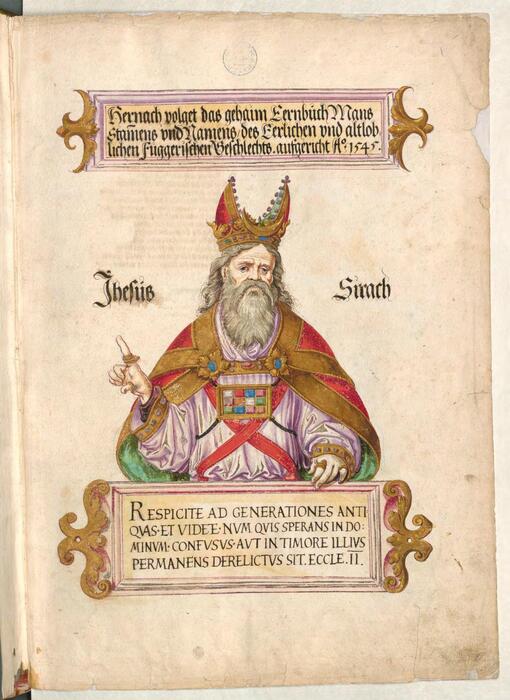 Hernach volget das gehaim Eernbůch Mans
Stam̃ens vnd Namens, des Eerlichen vnd altlob
lichen Fuggerischen Geschlechts. aufgericht A͠o. 1545.
Jhesüs Sirach
RESPICITE AD GENERATIONES ANTI
QVAS·ET VIDETE·NVM QVIS SPERANS IN DO:
MINVM·CONFVSVS·AVT IN TIMORE ILLIVS
PERMANENS DERELICTVS SIT. ECCLE.II.